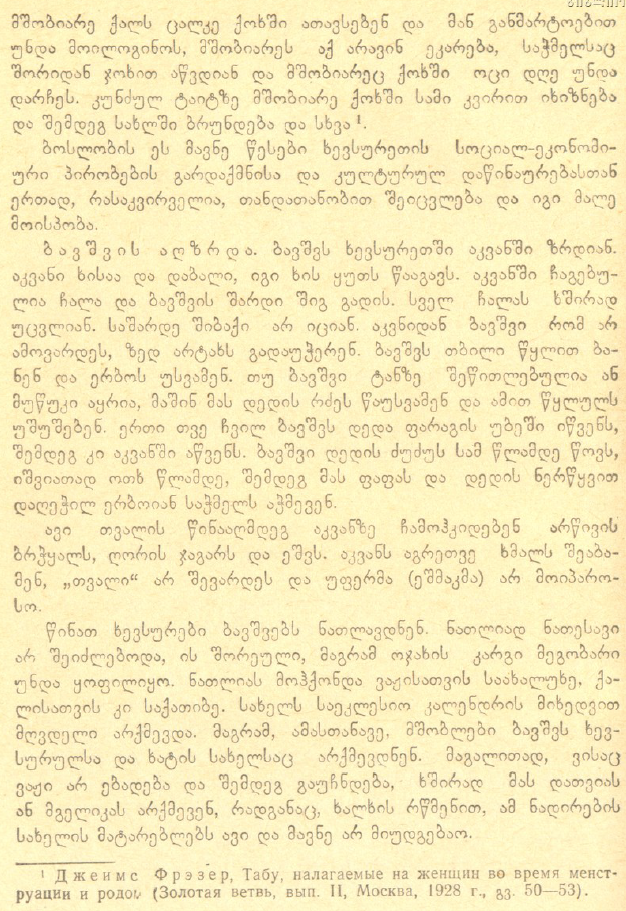 მშობიარე ქალს ცალკე ქოხში ათავსებენ და მან განმარტოებით
უნდა მოილოგინოს, მშობიარეს აქ არავინ ეკარება, საჭმელსაც
შორიდან ჯოხით აწვდიან და მშობიარეც ქოხში ოცი დღე უნდა
დარჩეს. კუნძულ ტაიტზე მშობიარე ქოხში სამი კვირით იხიზნება
და შემდეგ სახლში ბრუნდება და სხვა ¹.
ბოსლობის ეს მავნე წესები ხევსურეთის სოციალ-ეკონომი-
ური პირობების გარდაქმნისა და კულტურულ დაწინაურებასთან
ერთად, რასაკვირველია, თანდათანობით შეიცვლება და იგი მალე
მოისპობა.
ბავშვის აღზრდა. ბავშვს ხევსურეთში აკვანში ზრდიან.
აკვანი ხისაა და დაბალი, იგი ხის ყუთს წააგავს. აკვანში ჩაგებუ-
ლია ჩალა და ბავშვის შარდი შიგ გადის. სველ ჩალას ხშირად
უცვლიან. საშარდე შიბაქი არ იციან. აკვნიდან ბავშვი რომ არ
ამოვარდეს, ზედ არტახს გადაუჭერენ. ბავშვს თბილი წყლით ბა-
ნენ და ერბოს უსვამენ. თუ ბავშვი ტანზე შეწითლებულია ან
მუწუკი აყრია, მაშინ მას დედის რძეს წაუსვამენ და ამით წყლულს
უშუშებენ. ერთი თვე ჩვილ ბავშვს დედა ფარაგის უბეში იწვენს,
შემდეგ კი აკვანში აწვენს. ბავშვი დედის ძუძუს სამ წლამდე წოვს,
იშვიათად ოთხ წლამდე, შემდეგ მას ფაფას და დედის ნერწყვით
დაღეჭილ ერბოიან საჭმელს აჭმევენ.
ავი თვალის წინააღმდეგ აკვანზე ჩამოჰკიდებენ არწივის
ბრჭყალს, ღორის ჯაგარს და ეშვს. აკვანს აგრეთვე ხმალს შეაბა-
მენ, „თვალი“ არ შევარდეს და უფერმა (ეშმაკმა) არ მოიპარო-
სო.
წინათ ხევსურები ბავშვებს ნათლავდნენ. ნათლიად ნათესავი
არ შეიძლებოდა, ის შორეული, მაგრამ ოჯახის კარგი მეგობარი
უნდა ყოფილიყო. ნათლიას მოჰქონდა ვაჟისათვის საახალუხე, ქა-
ლისათვის კი საქათიბე. სახელს საეკლესიო კალენდრის მიხედვით
მღვდელი არქმევდა. მაგრამ, ამასთანავე, მშობლები ბავშვს ხევ-
სურულსა და ხატის სახელსაც არქმევდნენ. მაგალითად, ვისაც
ვაჟი არ ებადება და შემდეგ გაუჩნდება, ხშირად მას დათვიას
ან მგელიკას არქმევენ, რადგანაც, ხალხის რწმენით, ამ ნადირების
სახელის მატარებლებს ავი და მავნე არ მიუდგებაო.
¹ Джеймс Фрэзер, Табу, налагаемые на женщин во время менст-
руации и родов (Золотая ветвь, вып. II, Москва, 1928 г., გვ. 50—53).